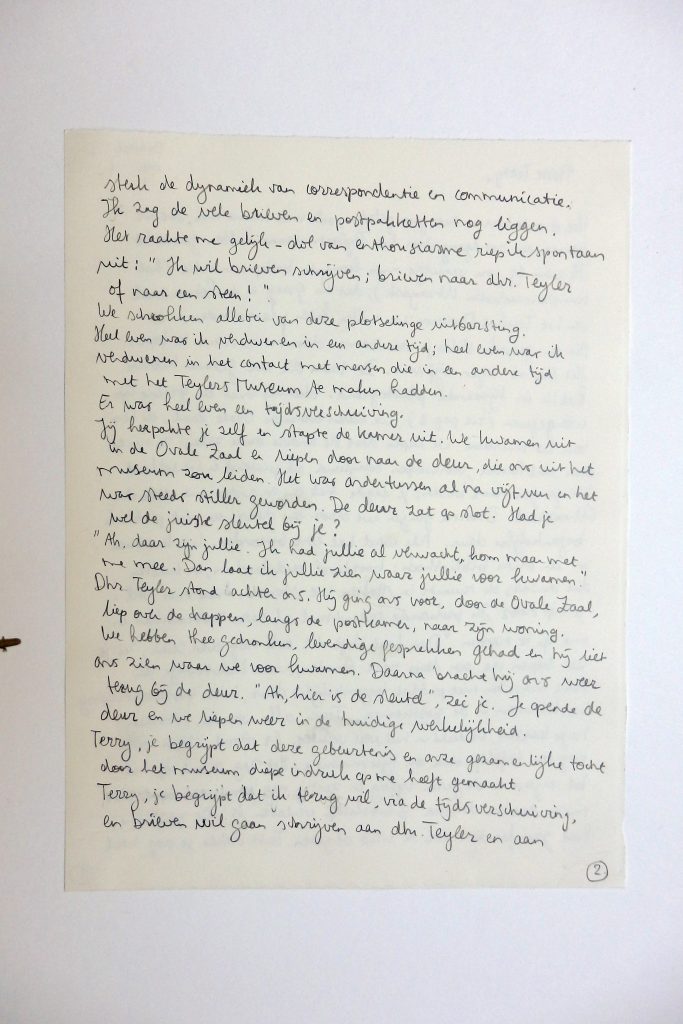 sterk de dynamiek van correspondentie en communicatie.
Ik zag de vele brieven en postpakketten nog liggen.
Het raakte me gelijk - dol van enthousiasme riep ik spontaan
uit: "Ik wil brieven schrijven; brieven naar dhr. Teyler
of naar een steen!".
We schrokken allebei van deze plotselinge uitbarsting.
Heel even was ik verdwenen in een andere tijd; heel even was ik
verdwenen in het contact met mensen die in een andere tijd
met het Teylers Museum te maken hadden.
Er was heel even een tijdsverschuiving.
Jij herpakte je zelf en stapte de kamer uit. We kwamen uit
in de Ovale Zaal en liepen door naar de deur, die ons uit het
museum zou leiden. Het was ondertussen al na vijf uur en het
was steeds stiller geworden. De deur zat op slot. Had je
wel de juiste sleutel bij je?
"Ah, daar zijn jullie. Ik had jullie al verwacht, kom maar met
me mee. Dan laat ik jullie zien waar jullie voor kwamen."
Dhr. Teyler stond achter ons. Hij ging ons voor, door de Ovale Zaal,
liep over de trappen, langs de postkamer, naar zijn woning.
We hebben thee gedronken, levendige gesprekken gehad en hij liet
ons zien waar we voor kwamen. Daarna bracht hij ons weer
terug bij de deur. "Ah, hier is de sleutel", zei je. Je opende de
deur en we liepen weer in de huidige werkelijkheid.
Terry, je begrijpt dat deze gebeurtenis en onze gezamenlijke tocht
door het museum diepe indruk op me heeft gemaakt
Terry, je begrijpt dat ik terug wil, via de tijdsverschuiving,
en brieven wil gaan schrijven aan dhr. Teyler en aan
2